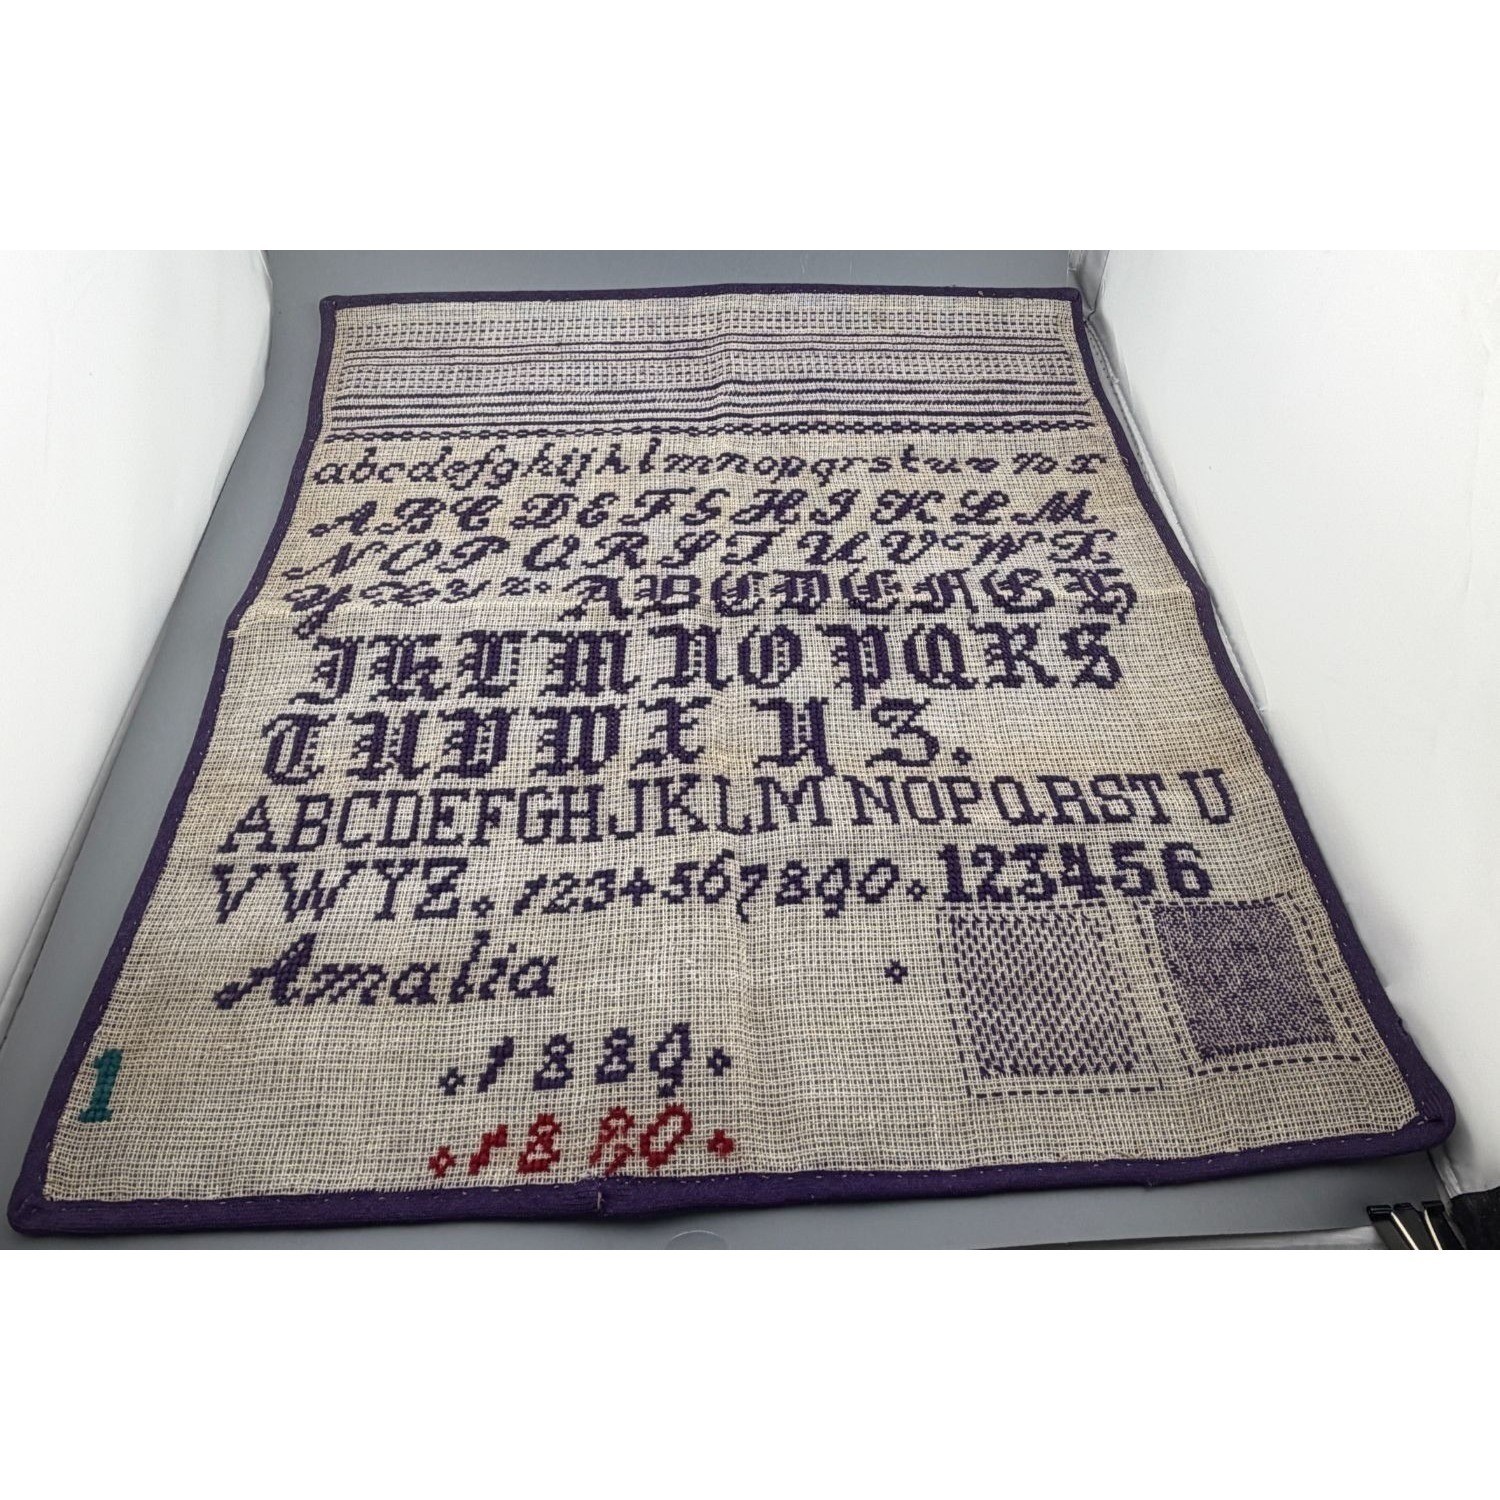 abcdefghijklmnopqrstuvwx
ABCDEFGHIJKLM
NOPQRSTUVWX
YZyz. ABCDEFGH
IKLMNOPQRS
TUVWXYZ.
ABCDEFGHIJKLMNOPQRSTU
VWXYZ. 1234567890. 123456
Amalia
.1889.
1
.1890.